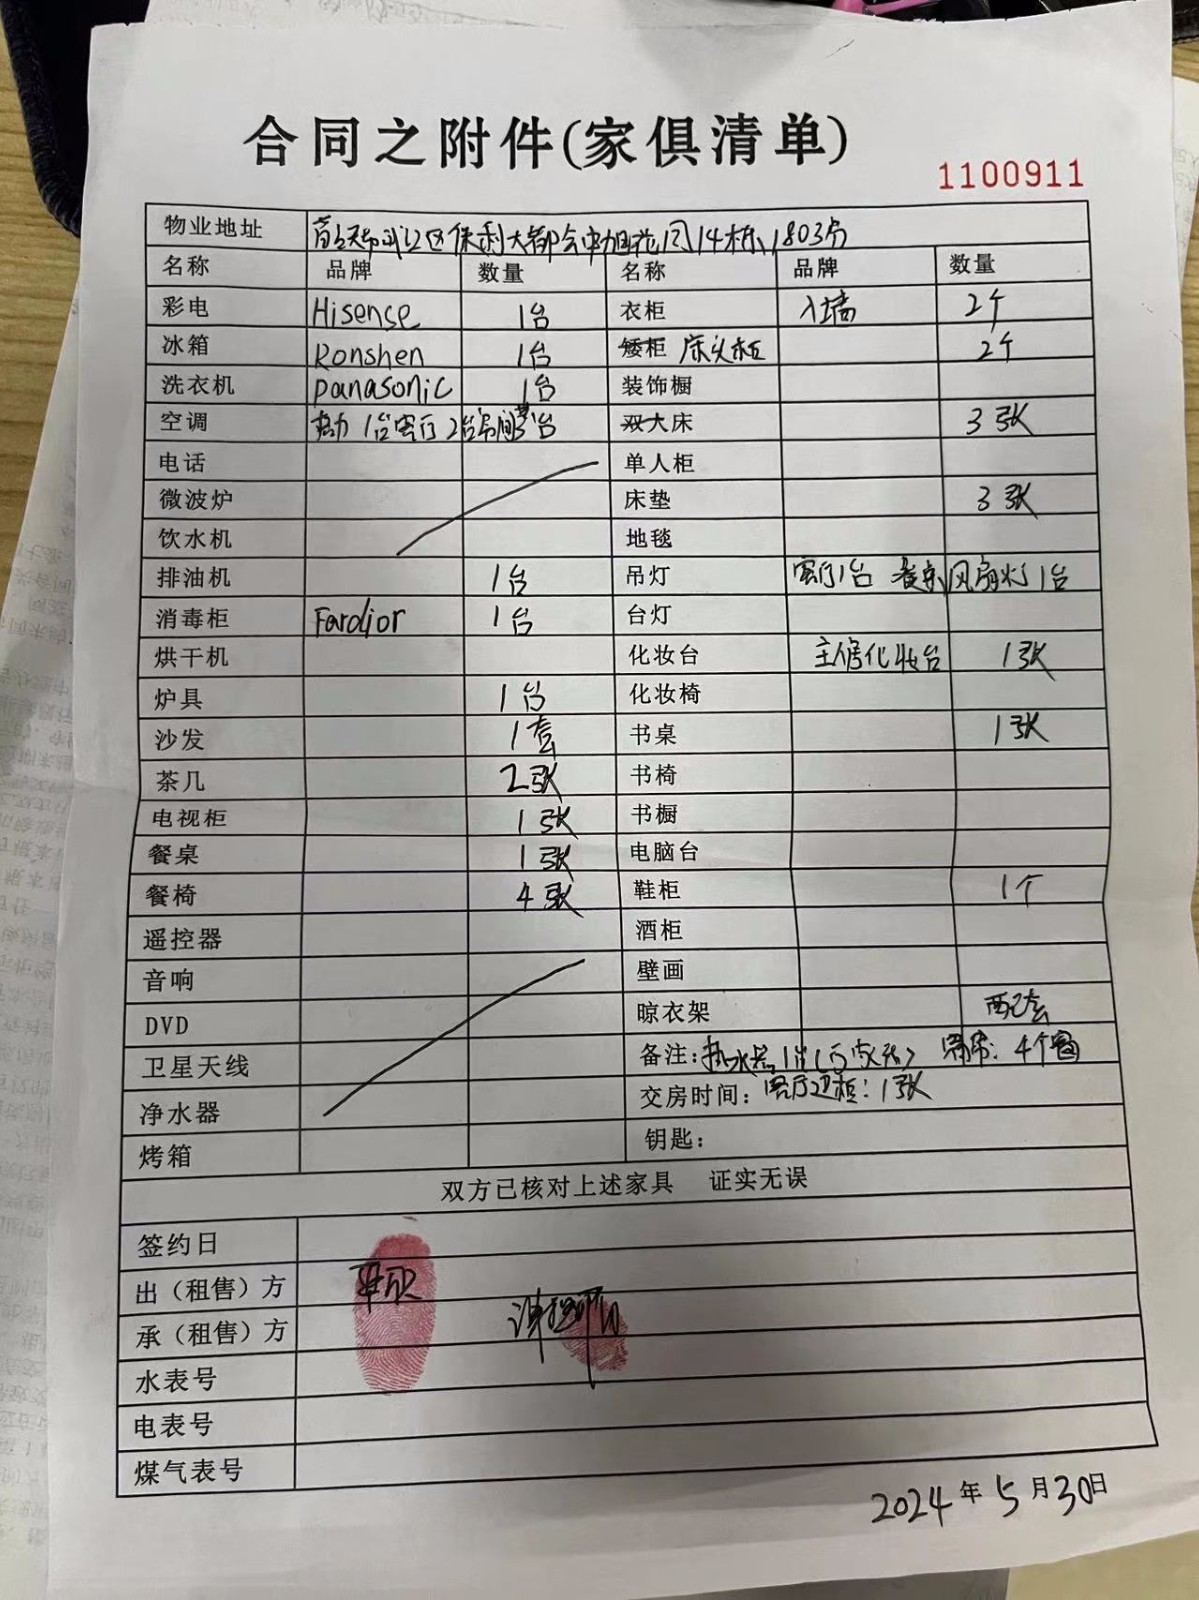 合同之附件(家俱清单)
1100911
物业地址 区保利大都会 花园14栋1803房
名称 品牌 数量 名称 品牌 数量
彩电 Hisense 1台 衣柜 入墙 2个
冰箱 Ronshen 1台 矮柜 床头柜 2个
洗衣机 panasonic 1台 装饰橱
空调 1台客厅 2台房间 台 双大床 3张
电话 单人柜
微波炉 床垫 3张
饮水机 地毯
排油机 1台 吊灯 客厅1台 风扇灯1台
消毒柜 Fardior 1台 台灯
烘干机 化妆台 主人房化妆台 1张
炉具 1台 化妆椅
沙发 1套 书桌 1张
茶几 2张 书椅
电视柜 1张 书橱
餐桌 1张 电脑台
餐椅 4张 鞋柜 1个
遥控器 酒柜
音响 壁画
DVD 晾衣架 两套
卫星天线 备注:热水器1台(万家乐) 窗帘:4个窗
净水器 交房时间:客厅边柜:1张
烤箱 钥匙:
双方已核对上述家具 证实无误
签约日
出（租售）方
承（租售）方
水表号
电表号
煤气表号
2024年5月30日